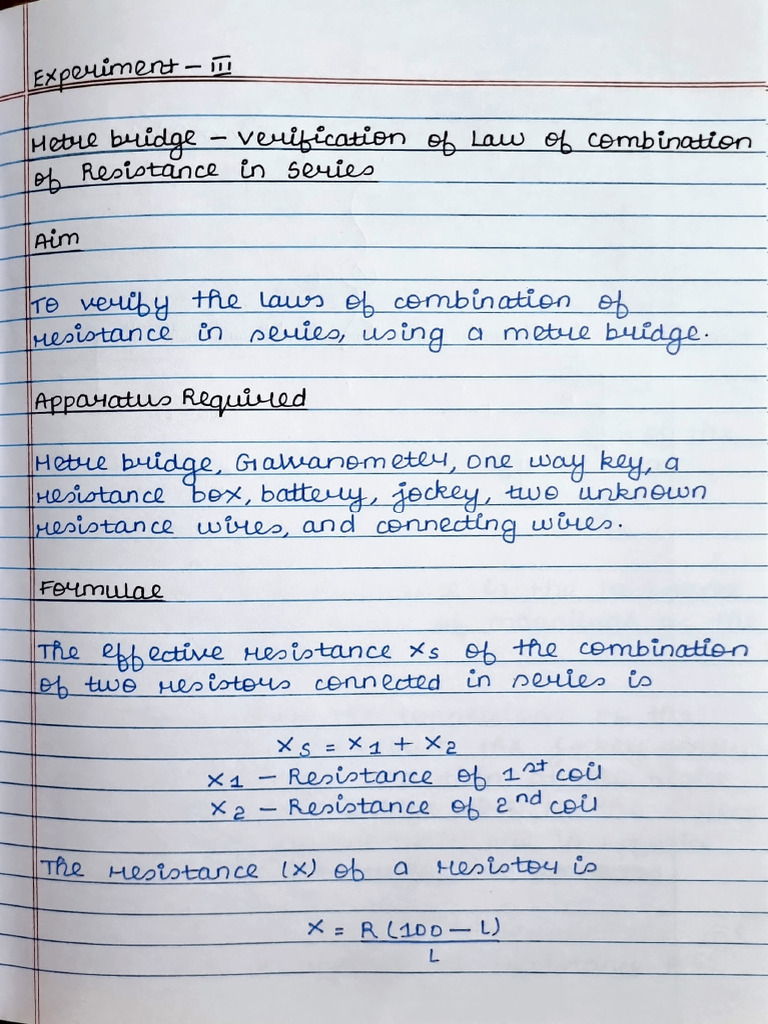 Experiment - III
Metre bridge - Verification of Law of combination
of Resistance in series
Aim
To verify the laws of combination of
resistance in series, using a metre bridge.
Apparatus Required
Metre bridge, Galvanometer, one way key, a
resistance box, battery, jockey, two unknown
resistance wires, and connecting wires.
Formulae
The effective resistance Xs of the combination
of two resistors connected in series is
Xs = X1 + X2
X1 - Resistance of 1st coil
X2 - Resistance of 2nd coil
The resistance (X) of a resistor is
X = R (100 - L)
L